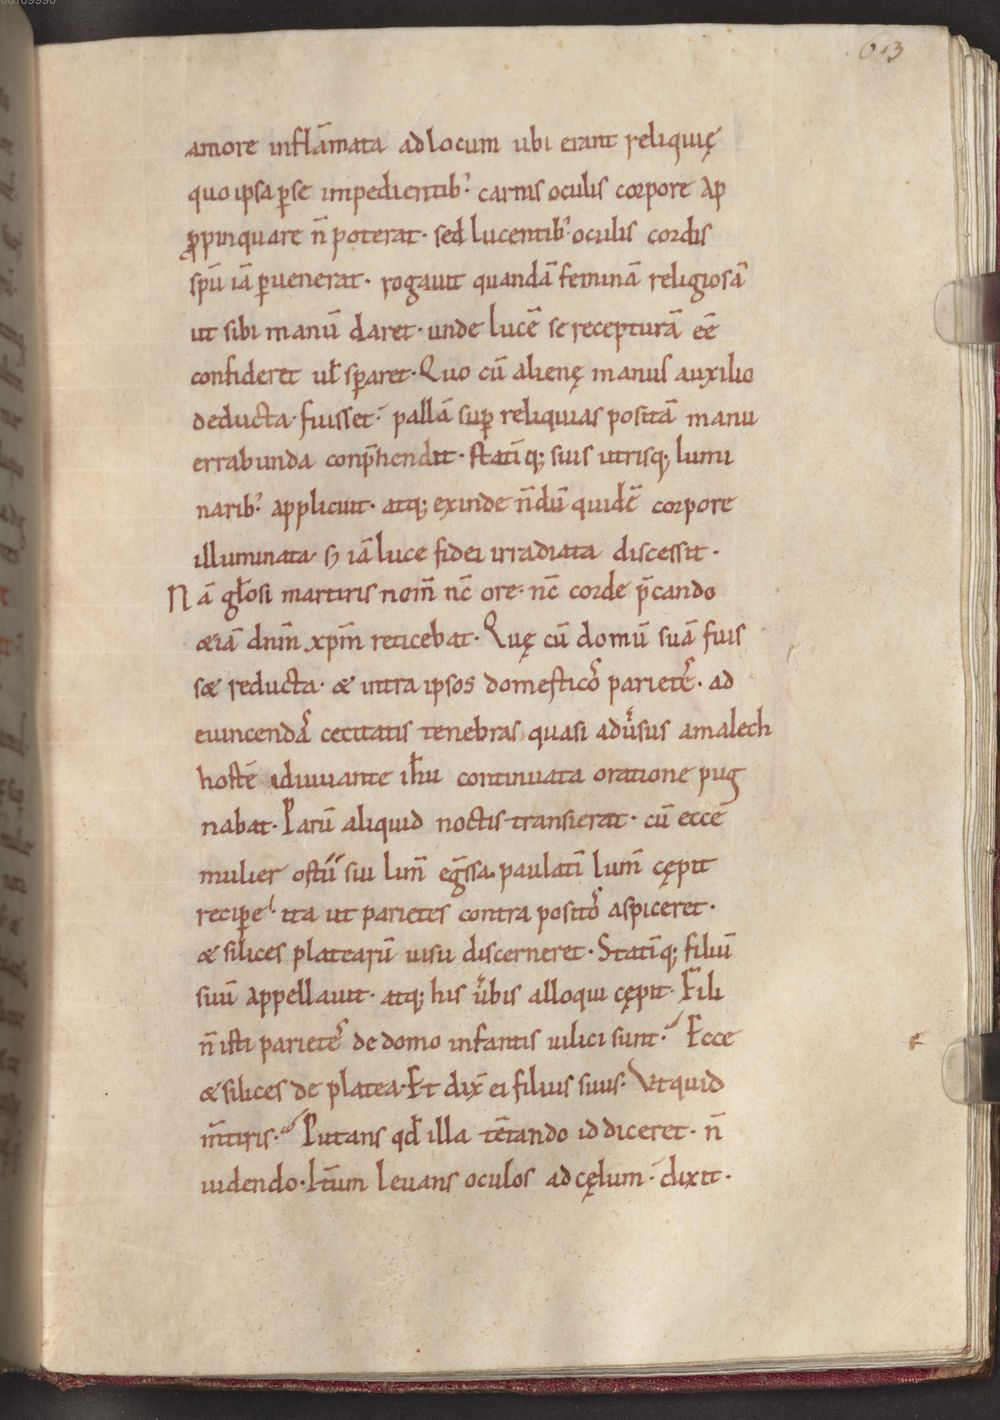 63
amore inflāmata ad locum ubi erant reliquię
quo ipsa ꝑse impedientib᷒ carnis oculis corpore ap
ꝓpinquare n̄ poterat· sed lucentib᷒ oculis cordis
spū iā ꝑuenerat· rogauit quandā feminā religiosā
ut sibi manū daret· unde lucē se recepturā eē
confideret ul̄ sꝑaret· Quo cū alienę manus auxilio
deducta fuisset· pallā suꝑ reliquias positā manu
errabunda conp̄hendit· statīq; suis utrisq; lumi
narib᷒ applicuit· atq; exinde n̄dū quidē corpore
illuminata· ꝫ iā luce fidei irradiata discessit·
Nā gl̄osi martiris nom̄ nc̄ ore· nc̄ corde p̄cando
ætiā dn̄m xp̄m reticebat· Quę cū domū suā fuis
sæ reducta· æ intra ipsos domesticos parietes· ad
euincendas cecitatis tenebras quasi adūsus amalech
hostē adiuuante ih̄u continuata oratione pug
nabat· Parū aliquid noctis transierat· cū ecce
mulier ostiū sui lim̄ eḡssa paulatī lum̄ cępit
reciꝑe· ita ut parietes contra positos aspiceret·
æ silices platearū uisu discerneret· Statīq; filiū
suū appellauit· atq; his ūbis alloqui cępit· Fili
n̄ isti parietes de domo infantis uilici sunt· Ecce
æ silices de platea· Et dix̄ ei filius suus· Vtquid
m̄tiris· Putans qd̄ illa tēptando id diceret· n̄
uidendo· Itm̄ leuans oculos ad cęlum· dixit·